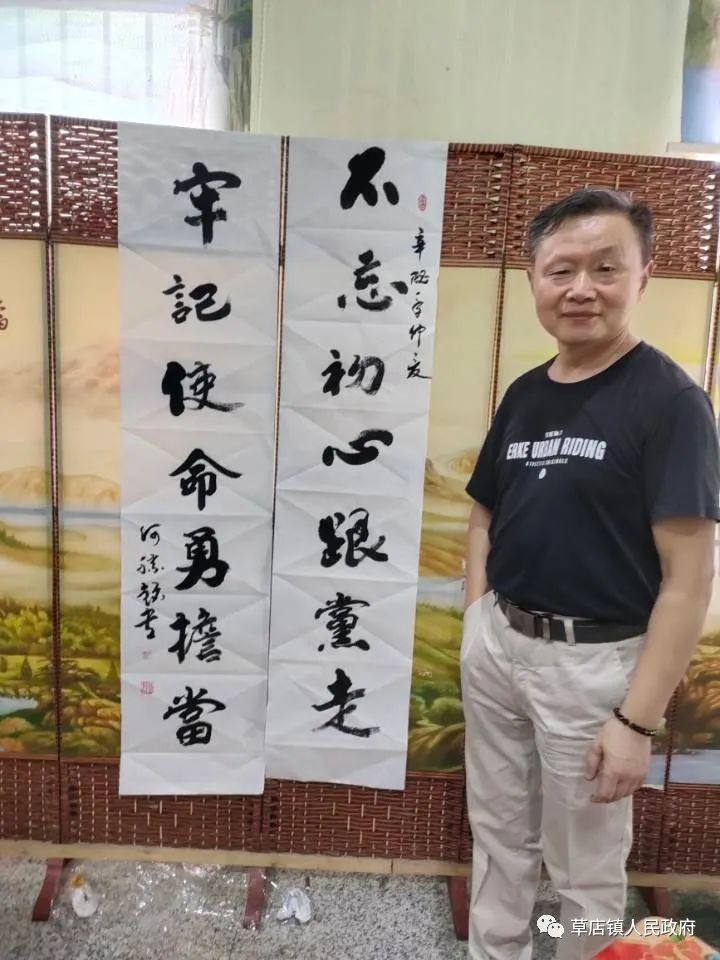 不忘初心跟黨走
辛醜年仲夏
牢記使命勇擔當
何
書
ERKE URBAN RIDING
草店镇人民政府